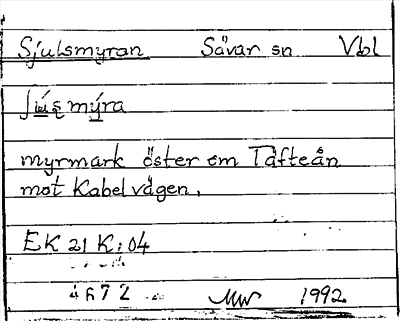 Sjulsmyran Sävar sn Vbl
myrmark öster om Täfteån
mot Kabelvägen.
EK 21 K:04
1992